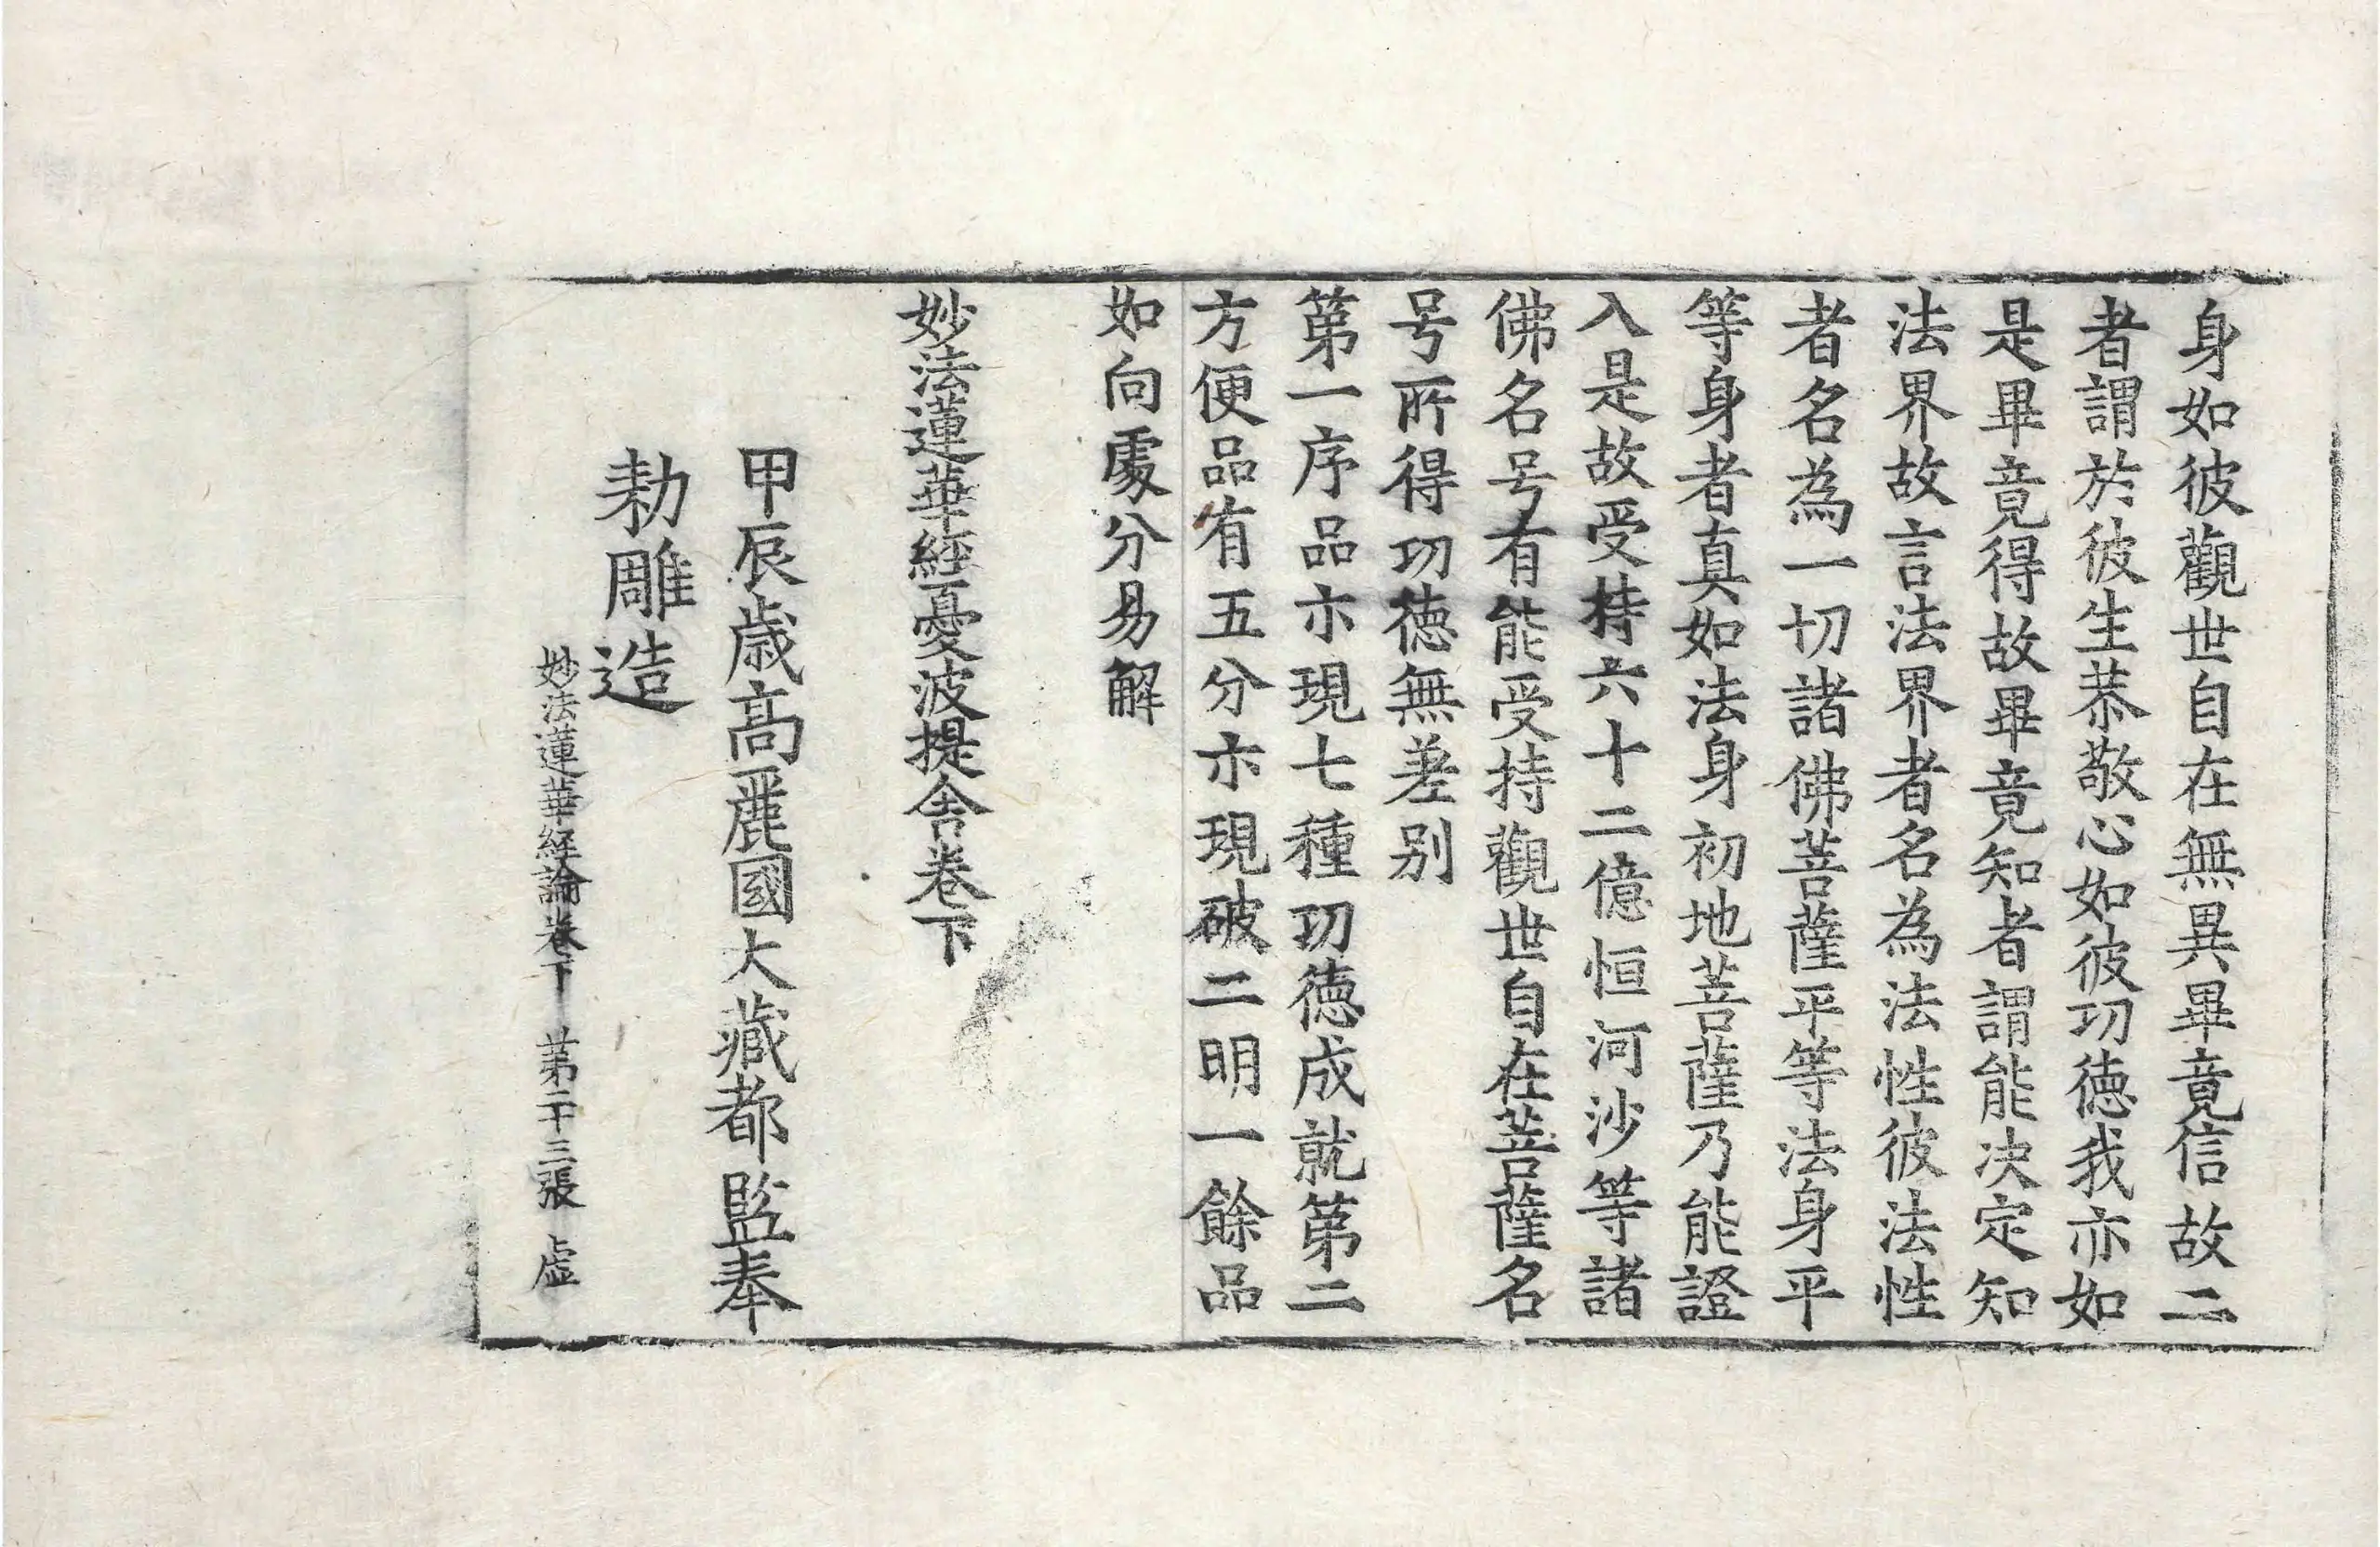 身如彼觀世自在無異畢竟信故二
者謂於彼生恭敬心如彼功德我亦如
是畢竟得故畢竟知者謂能决定知
法界故言法界者名為法性彼法性
者名為一切諸佛菩薩平等法身平
等身者真如法身初地菩薩乃能證
入是故受持六十二億恒河沙等諸
佛名号有能受持觀世自在菩薩名
号所得功德無差别
第一序品示現七種功德成就第二
方便品有五分示現破二明一餘品
如向處分易解
妙法蓮華經憂波提舍卷下
甲辰歲高麗國大藏都監奉
勑雕造
妙法蓮華經論卷下 第二十三張 虛